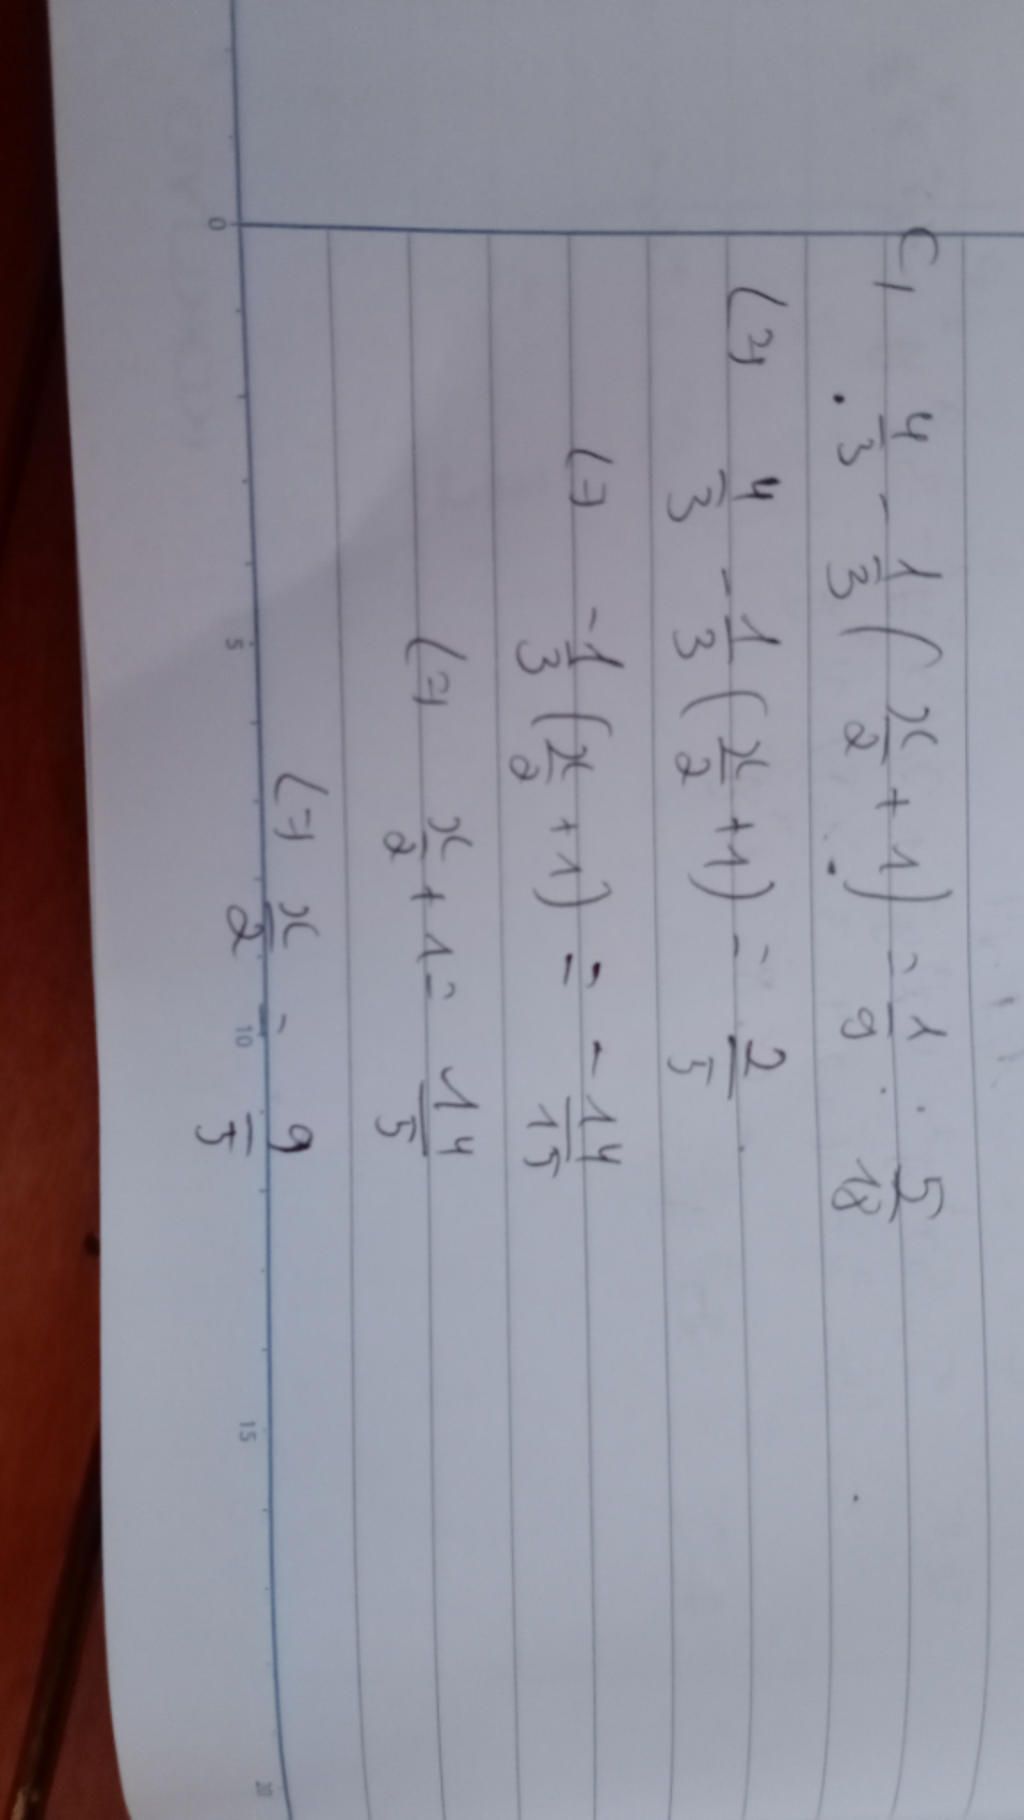 C, 4/3 - 1/3 (x/2 + 1) = 1/9 : 5/18
(=) 4/3 - 1/3 (x/2 + 1) = 2/5
(=) -1/3 (x/2 + 1) = -14/15
(=) x/2 + 1 = 14/5
(=) x/2 = 9/5
0 5 10 15 20